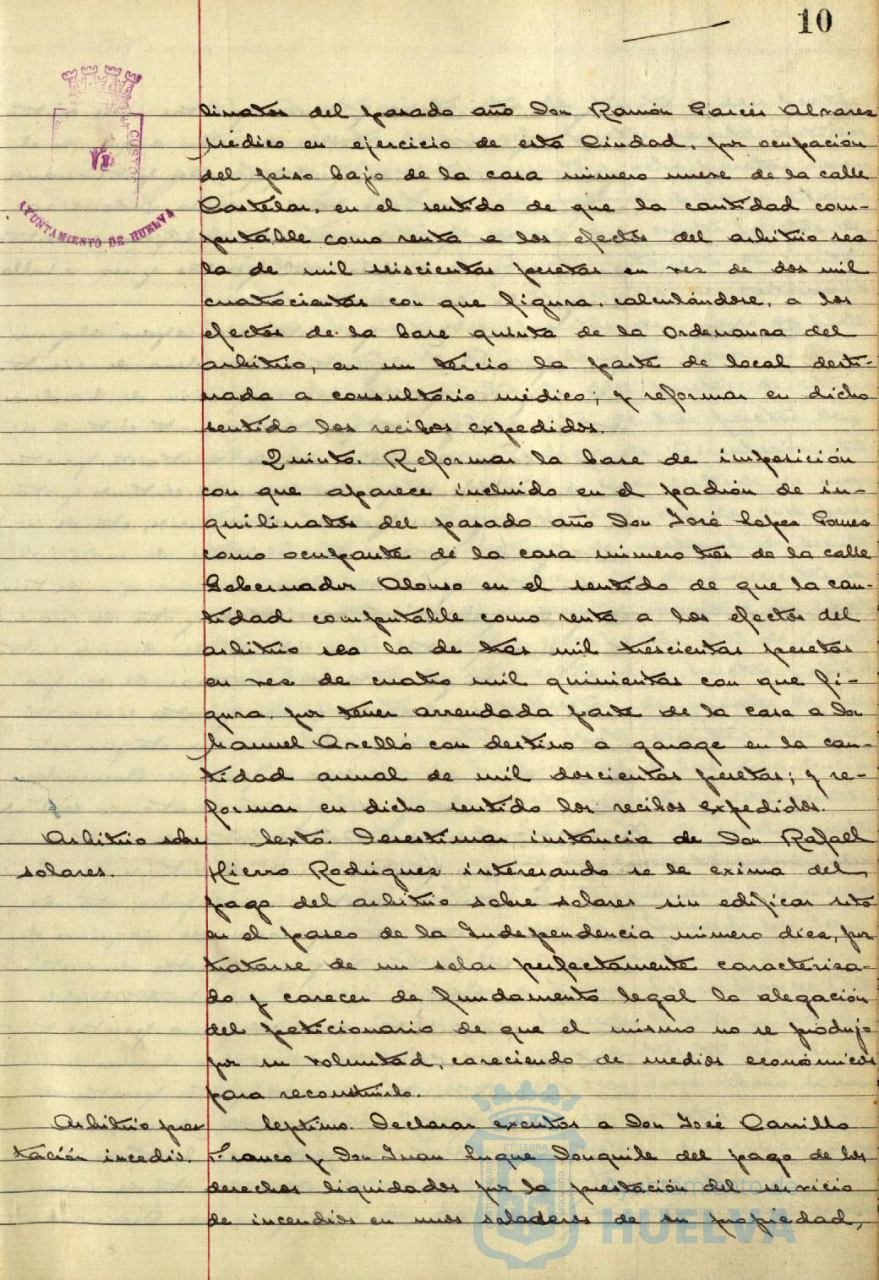 10
CUSTO
AYUNTAMIENTO DE HUELVA
linatos del pasado año Don Ramón Garcés Alvarez
Médico en ejercicio de esta Ciudad, por ocupación
del piso bajo de la casa número nueve de la calle
Castelar, en el sentido de que la cantidad com-
putable como renta a los efectos del arbitrio sea
la de mil seiscientas pesetas en vez de dos mil
cuatrocientas con que figura, calculándose, a los
efectos de la base quinta de la Ordenanza del
arbitrio, en un tercio la parte de local desti-
nada a consultorio médico; y reformar en dicho
sentido los recibos expedidos.
Quinto. Reformar la base de imposición
con que aparece incluido en el padrón de in-
quilinatos del pasado año Don José Lopez Gomez
como ocupante de la casa número tres de la calle
Gobernador Alonso en el sentido de que la can-
tidad computable como renta a los efectos del
arbitrio sea la de tres mil trescientas pesetas
en vez de cuatro mil quinientas con que fi-
gura, por tener arrendada parte de la casa a Don
Manuel Avelló con destino a garage en la can-
tidad anual de mil doscientas pesetas; y re-
formar en dicho sentido los recibos expedidos.
Arbitrio sobre
solares.
Sexto. Desestimar instancia de Don Rafael
Hierro Rodriguez interesando se le exima del
pago del arbitrio sobre solares sin edificar sito
en el paseo de la Independencia número diez, por
tratarse de un solar perfectamente caracteriza-
do y carecer de fundamento legal la alegación
del peticionario de que el mismo no se produjo
por su voluntad, careciendo de medios económicos
para reconstruirlo.
Arbitrio pres
tación incedis.
Septimo. Declarar exentos a Don José Carrillo
Franco y Don Juan Luque del pago de los
derechos liquidados por la prestación del servicio
de incendios en unos saladeros de su propiedad,
HUELVA